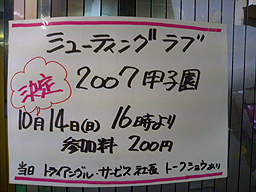 ミューティングラブ
決定
2007甲子園
10月14日(日) 16時より
参加料 200円
当日 トライアングル・サービス 社長 トークショウあり